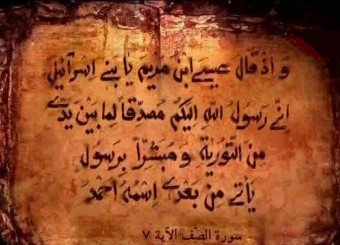 و اذ قال عيسے ابن مريم يا بنے اسرآئيل
انے رسول الله اليكم مصدقاً لما بين يدے
من التورية و مبشراً برسول
يأتے من بعدے اسمه احمد
سورة الصف الآية ٧